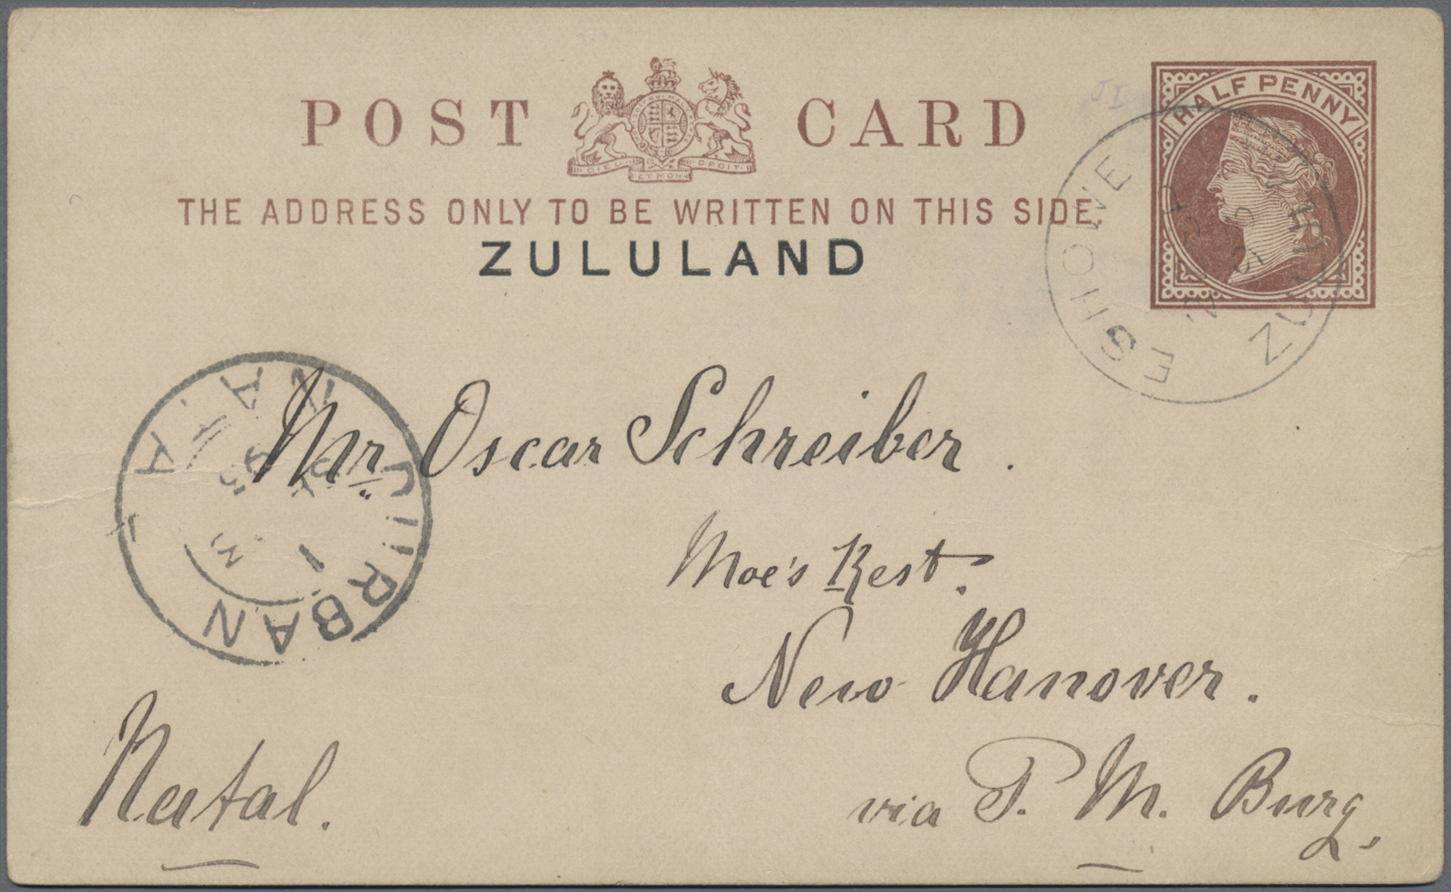 POST CARD
HALF PENNY
DIEU ET MON DROIT
THE ADDRESS ONLY TO BE WRITTEN ON THIS SIDE.
ZULULAND
ESHOWE
DURBAN
Mr Oscar Schreiber.
Moe's Rest.
New Hanover.
via P. M. Burg,
Natal.